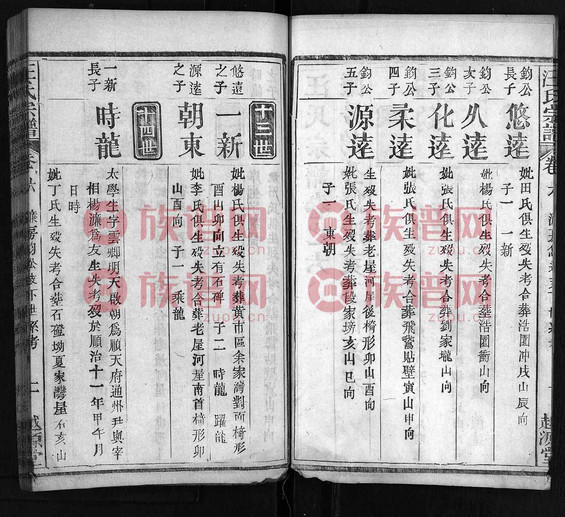 汪氏宗譜
卷六
越源堂
鈞公
長子
悠達
妣田氏俱生歿失考合葬浩園冲戌山辰向
子一 一新
鈞公
次子
久達
妣楊氏俱生歿失考合葬浩園衝山向
鈞公
三子
化達
妣張氏俱生歿失考合葬劉家壠山向
鈞公
四子
柔達
妣張氏俱生歿失考合葬飛鵞貼壁寅山申向
鈞公
五子
源達
生歿失考葬老屋河星後椅形卯山酉向
妣張氏生歿失考合葬段家塝亥山巳向
子一 東朝
十三世
悠達
之子
一新
妣楊氏俱生歿失考葬黄市區余家灣對面椅形
酉山卯向立有石碑 子二 時龍 躍龍
源達
之子
朝東
妣李氏俱生歿失考合葬老屋河星南首椅形卯
山酉向 子一 乘龍
十四世
一新
長子
時龍
太學生字雲卿明天啟朝爲順天府通州尹與宰
相楊濂爲友生失考歿於順治十一年甲午月
日時
妣丁氏生歿失考合葬石璧坳夏家灣屋 亥山
汪氏宗譜
卷六
越源堂
族谱网
zupu.cn
族谱网
zupu.cn
族谱网
zupu.cn
族谱网
zupu.cn